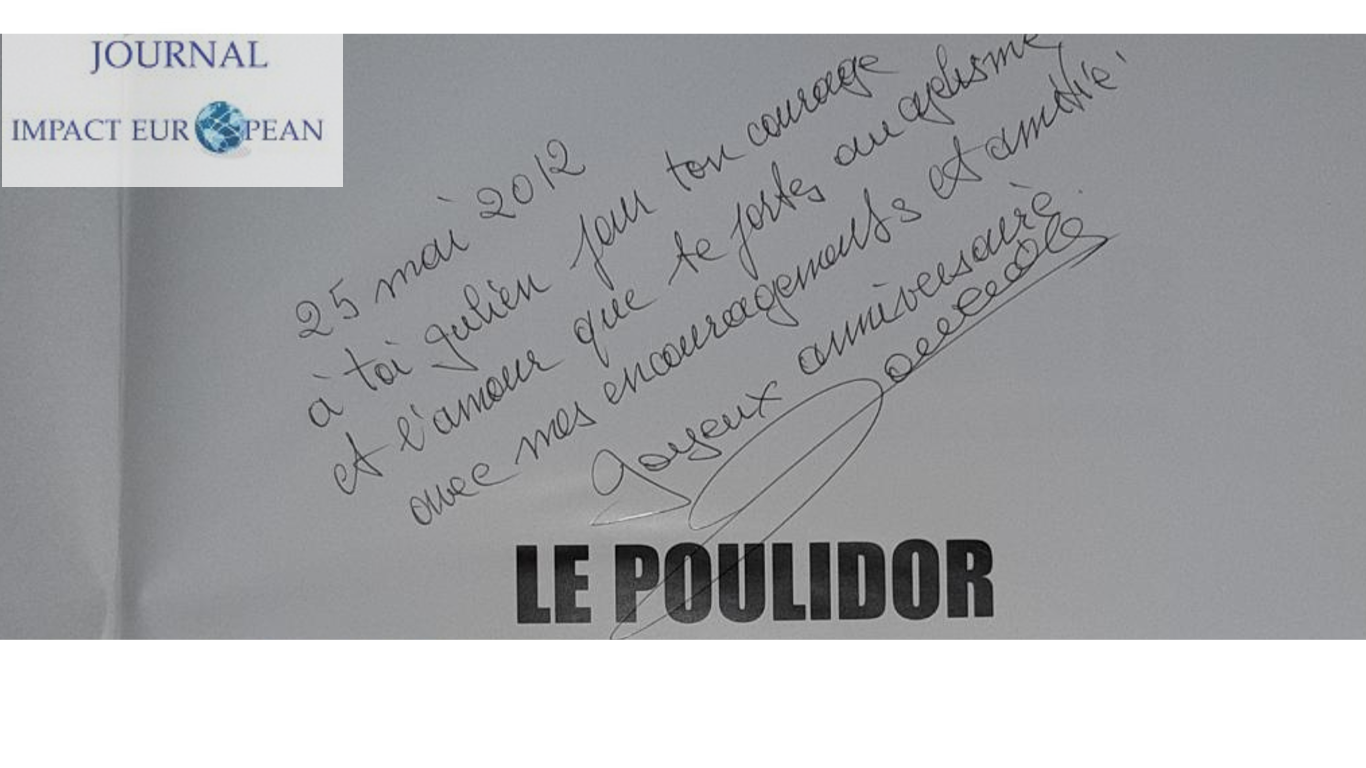 JOURNAL
IMPACT EUROPEAN
25 mai 2012
à toi Julien pour ton courage
et l'amour que te portes au cyclisme,
avec mes encouragements et amitié
Joyeux anniversaire.
LE POULIDOR